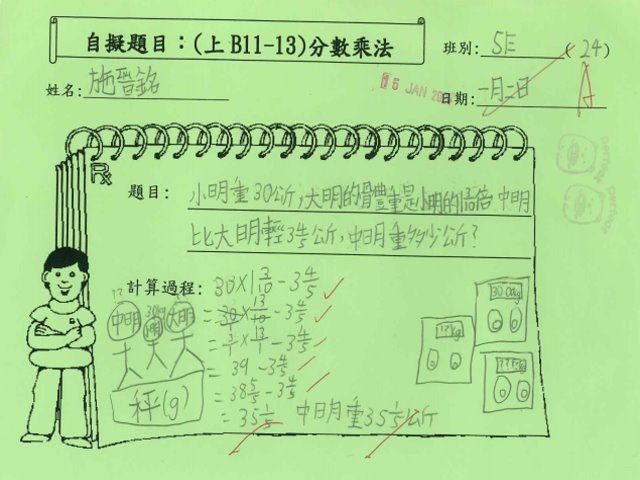 自擬題目：(上 B11-13)分數乘法
班別: 5E (24)
姓名: 施晉銘
15 JAN
日期: 一月二日
A
perfect
perfect
題目: 小明重30公斤,大明的體重是小明的1 3/10倍,中明
比大明輕3 4/5公斤,中明重多少公斤?
計算過程: 30×1 3/10-3 4/5
=30/1×13/10-3 4/5
=3/1×13/1-3 4/5
=39-3 4/5
=38 5/5-3 4/5
=35 1/5 中明重35 1/5公斤
?? 30kg ??
中明 小明 大明
秤(g)
30.00kg
??kg
???kg